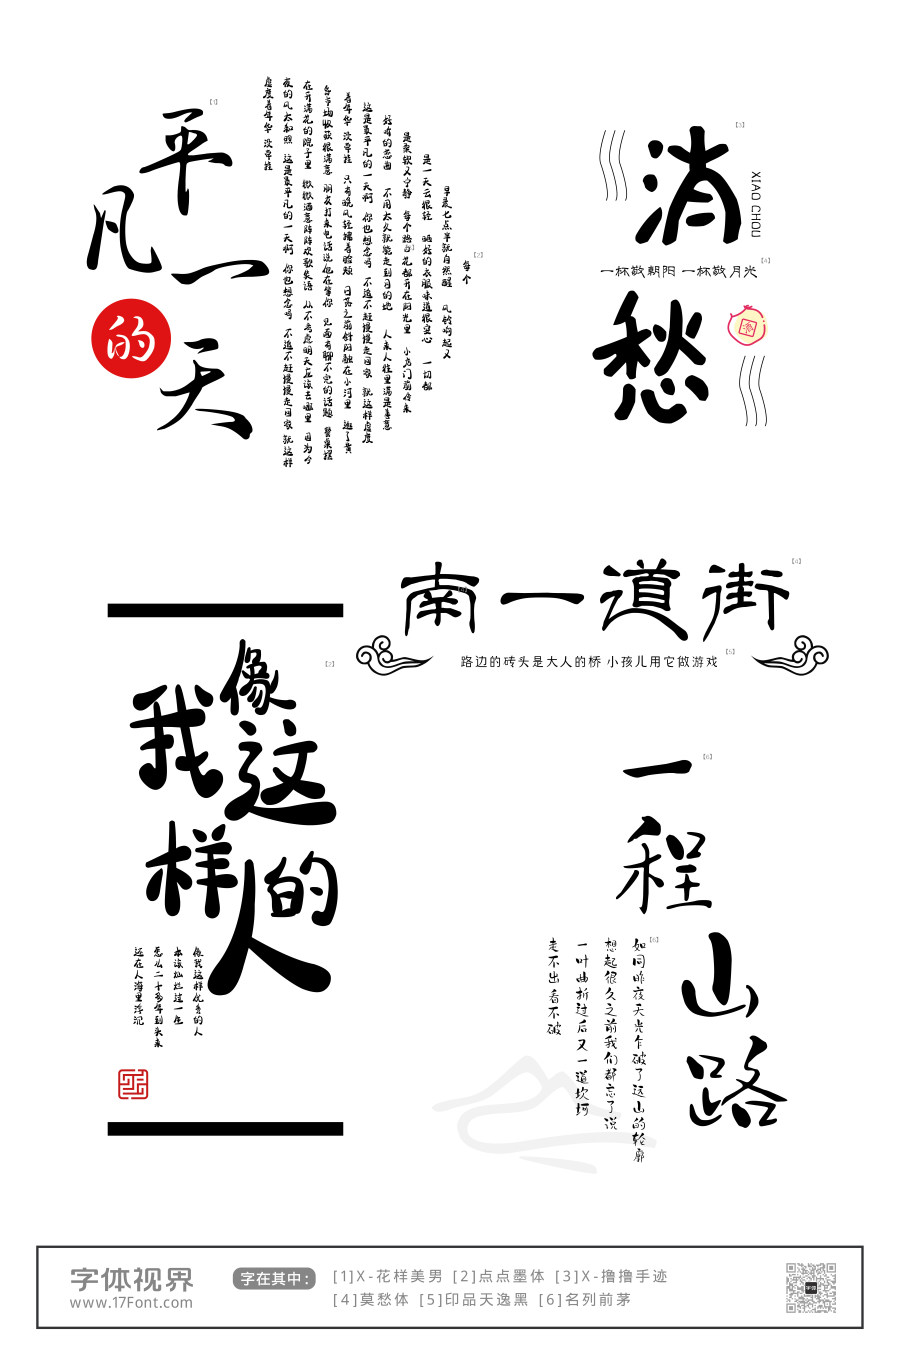 平凡一的天
[1]
[2]
每个
早晨七点半就自然醒 风铃响起又
是一天云很轻 晒好的衣服味道很安心 一切都
是柔软又宁静 每个路口花都开在阳光里 小店门前传来
好听的恋曲 不用太久就能走到目的地 人来人往里满是善意
这是最平凡的一天啊 你也想念吗 不追不赶慢慢走回家 就这样虚度
着年华 没牵挂 只有晚风轻拂着脸颊 日落之前斜阳融在小河里 逛了黄
多市场收获很满意 朋友打来电话说他在等你 见面有聊不完的话题
在开满花的院子里 微微洒意阵阵欢歌笑语 从不考虑明天应该去哪里 因为今
夜的风太和煦 这是最平凡的一天啊 你也想念吗 不追不赶慢慢走回家 就这样
虚度着年华 没牵挂
消愁
[3]
XIAO CHOU
一杯敬朝阳 一杯敬月光
[4]
南一道街
[4]
路边的砖头是大人的桥 小孩儿用它做游戏
[5]
像我这样的人
[2]
像我这样优秀的人
本该灿烂过一生
怎么二十多年到头来
还在人海里浮沉
一程山路
[6]
如同昨夜天光乍破了远山的轮廓
[6]
想起很久之前我们都忘了说
一叶曲折过后又一道坎坷
走不出看不破
字体视界
www.17Font.com
字在其中：
[1]X-花样美男 [2]点点墨体 [3]X-撸撸手迹
[4]莫愁体 [5]印品天逸黑 [6]名列前茅